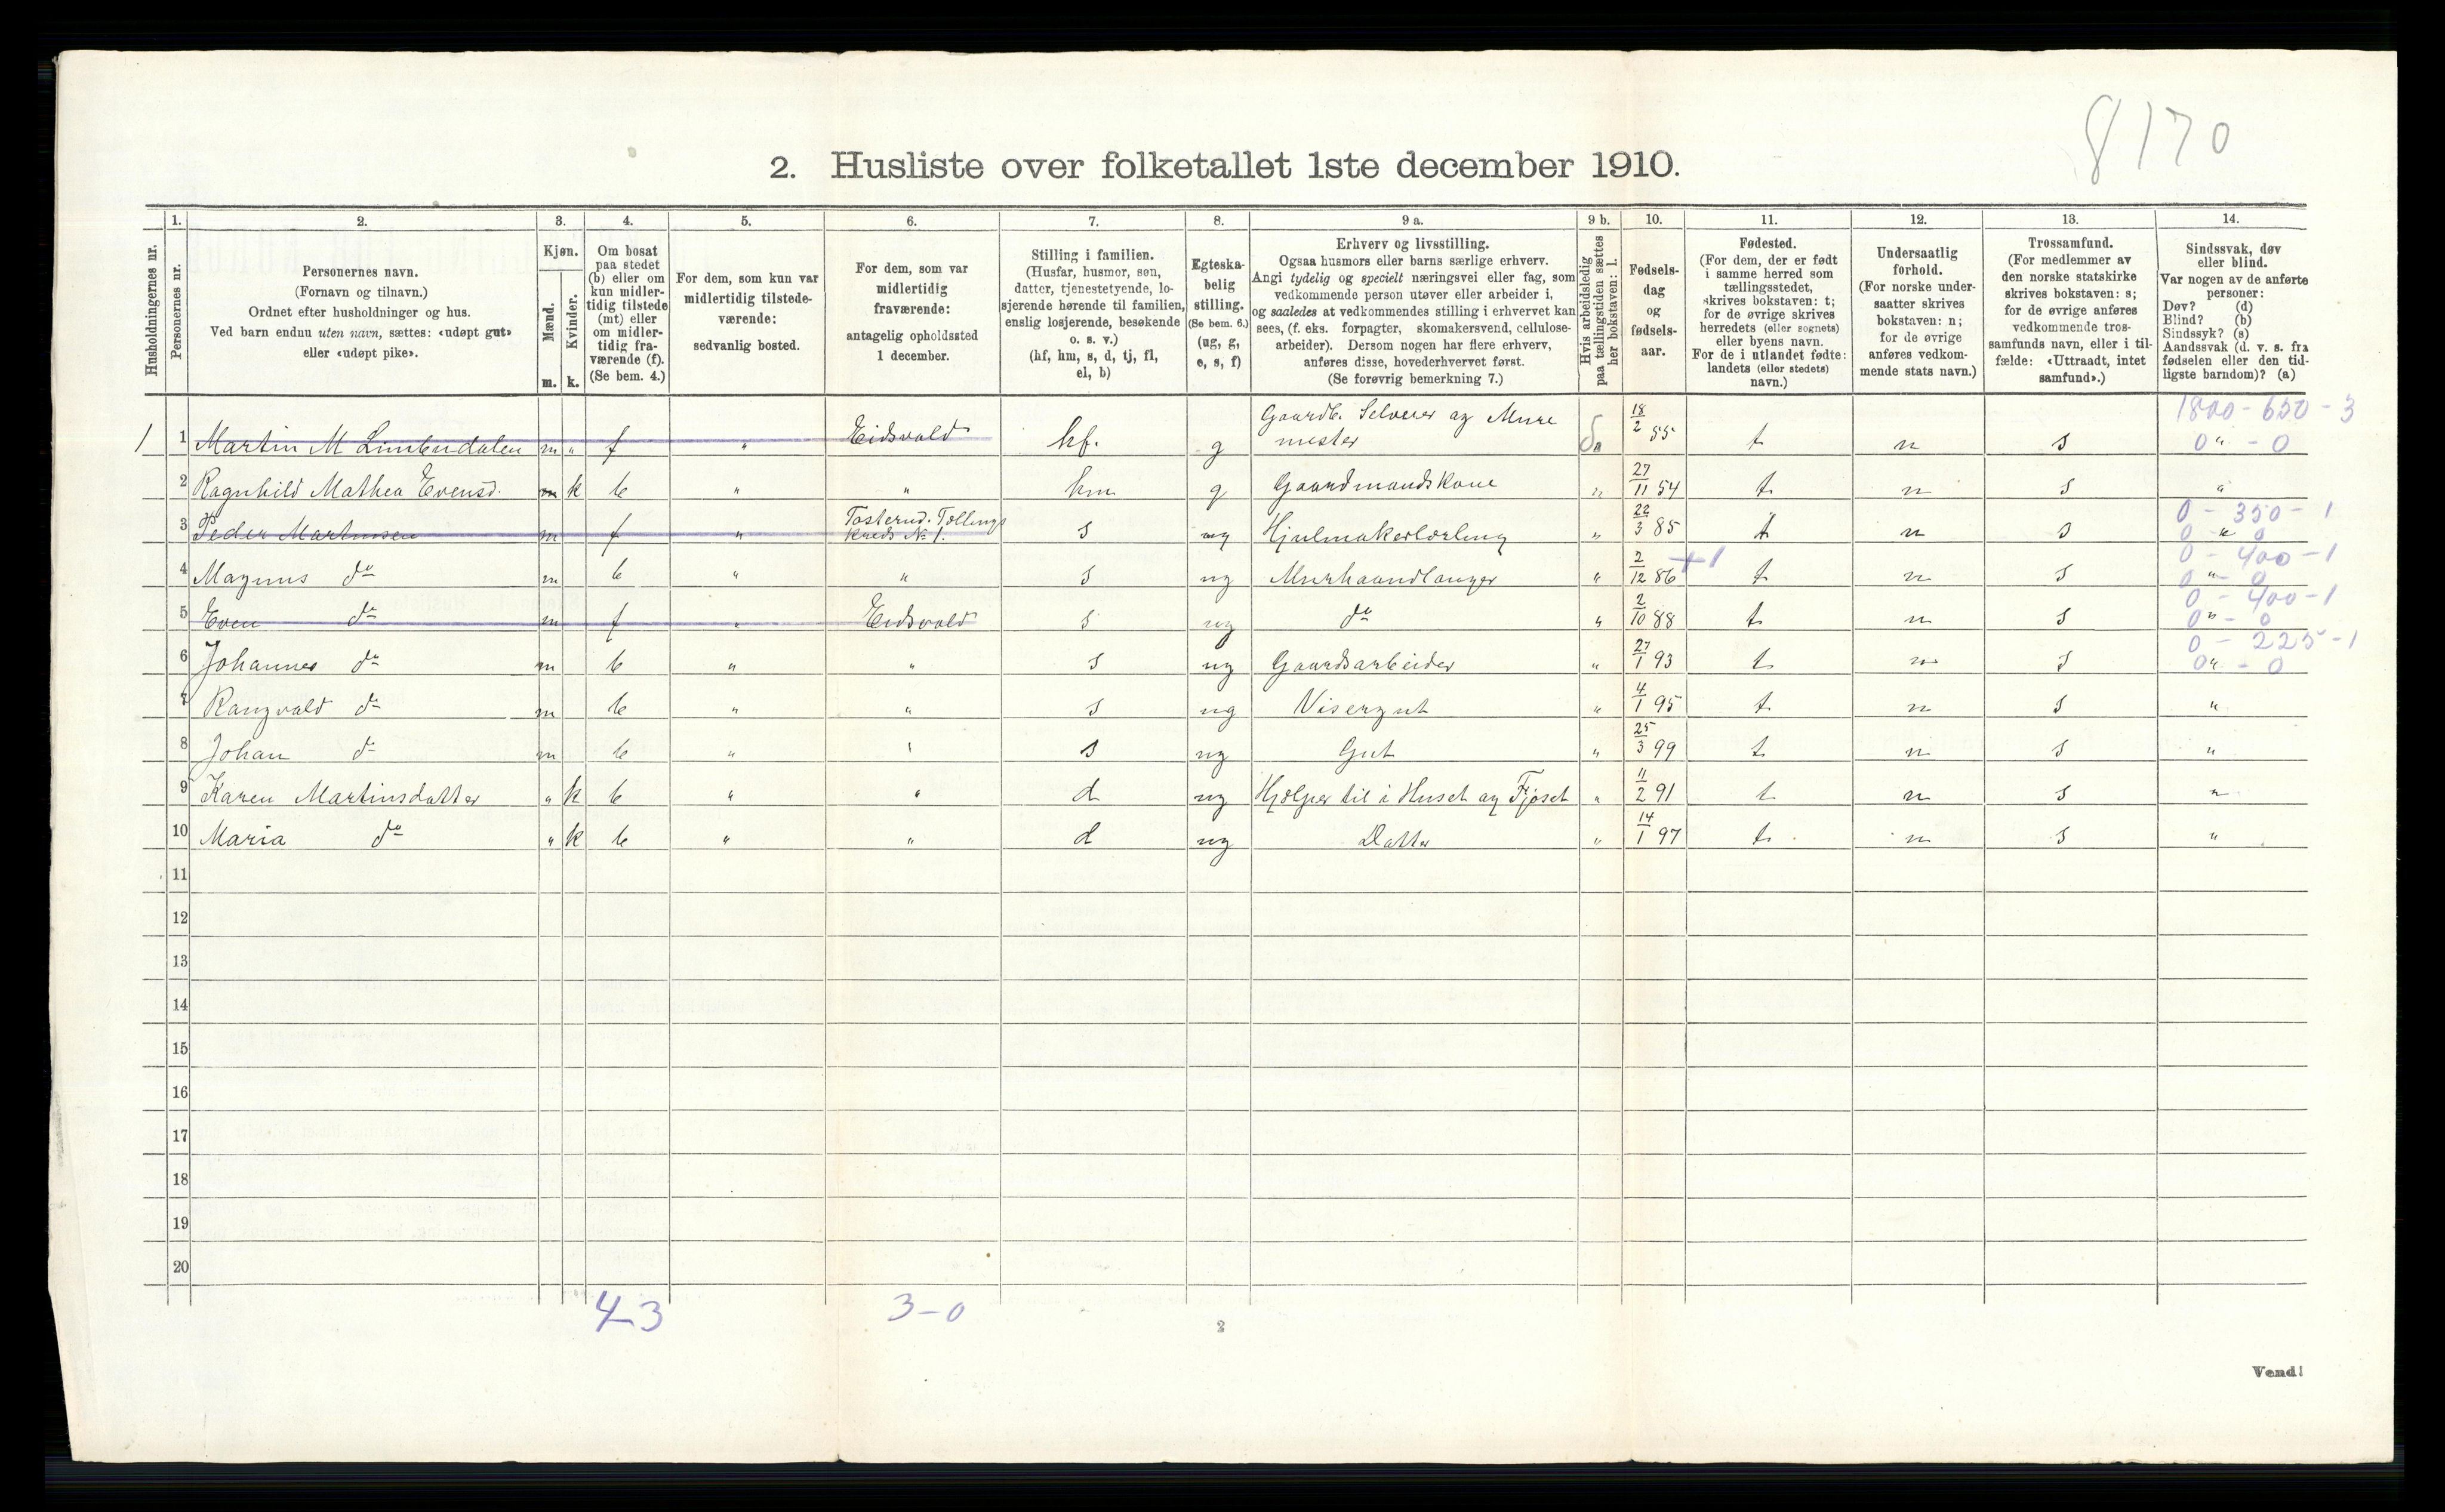 8170
2. Husliste over folketallet 1ste december 1910.
Husholdningernes nr.
1. Personernes nr.
2. Personernes navn.
(Fornavn og tilnavn.)
Ordnet efter husholdninger og hus.
Ved barn endnu uten navn, sættes: «udøpt gut»
eller «udøpt pike».
3. Kjøn.
Mænd. m.
Kvinder. k.
4. Om bosat
paa stedet
(b) eller om
kun midler-
tidig tilstede
(mt) eller
om midler-
tidig fra-
værende (f).
(Se bem. 4.)
5. For dem, som kun var
midlertidig tilstede-
værende:
sedvanlig bosted.
6. For dem, som var
midlertidig
fraværende:
antagelig opholdssted
1 december.
7. Stilling i familien.
(Husfar, husmor, søn,
datter, tjenestetyende, lo-
sjerende hørende til familien,
enslig losjerende, besøkende
o. s. v.)
(hf, hm, s, d, tj, fl,
el, b)
8. Egteska-
belig
stilling.
(Se bem. 6.)
(ug, g,
e, s, f)
9 a. Erhverv og livsstilling.
Ogsaa husmors eller barns særlige erhverv.
Angi tydelig og specielt næringsvei eller fag, som
vedkommende person utøver eller arbeider i,
og saaledes at vedkommendes stilling i erhvervet kan
sees, (f. eks. forpagter, skomakersvend, cellulose-
arbeider). Dersom nogen har flere erhverv,
anføres disse, hovederhvervet først.
(Se forøvrig bemerkning 7.)
9 b. Hvis arbeidsledig
paa tællingstiden sættes
her bokstaven: l.
10. Fødsels-
dag
og
fødsels-
aar.
11. Fødested.
(For dem, der er født
i samme herred som
tællingsstedet,
skrives bokstaven: t;
for de øvrige skrives
herredets (eller sognets)
eller byens navn.
For de i utlandet fødte:
landets (eller stedets)
navn.)
12. Undersaatlig
forhold.
(For norske under-
saatter skrives
bokstaven: n;
for de øvrige
anføres vedkom-
mende stats navn.)
13. Trossamfund.
(For medlemmer av
den norske statskirke
skrives bokstaven: s;
for de øvrige anføres
vedkommende tros-
samfunds navn, eller i til-
fælde: «Uttraadt, intet
samfund».)
14. Sindssvak, døv
eller blind.
Var nogen av de anførte
personer:
Døv? (d)
Blind? (b)
Sindssyk? (s)
Aandssvak (d. v. s. fra
fødselen eller den tid-
ligste barndom)? (a)
1800 - 650 - 3
1 1 Martin M Limbudalen m " f " Eidsvold hf. g Gaardb. Selveier og Mure mester 18/2 55 t n s 0 " - 0
2 Ragnhild Mathea Evensd. m k b " " hm g Gaardmandskone " 27/11 54 t n s "
0 - 350 - 1
3 Peder Martinsen m f " Tosterud. Tællings kreds No 1. s ug Hjulmakerlærling " 22/3 85 t n s 0 " 0
0 - 400 - 1
4 Magnus do m b " " s ug Murhaandlanger " 2/12 86 +1 t n s 0 " 0
0 - 400 - 1
5 Even do m f " Eidsvold s ug do " 2/10 88 t n s 0 " - 0
0 - 225 - 1
6 Johannes do m b " " s ug Gaardsarbeider " 27/1 93 t n s 0 " - 0
7 Rangvald do m b " " s ug Visergut " 4/1 95 t n s "
8 Johan do m b " " s ug Gut " 25/3 99 t n s "
9 Karen Martinsdatter " k b " " d ug Hjælper til i Huset og Fjøset " 11/2 91 t n s "
10 Maria do " k b " " d ug Datter " 14/1 97 t n s "
11
12
13
14
15
16
17
18
19
20
4-3 3-0
2
Vend!